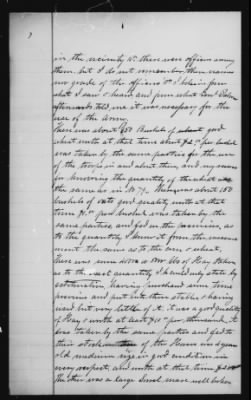 in the vicinity &c there were officers among
them but I do not remember their names
nor grade of the officers & I believe from
what I saw & heard and from what Genl
afterwards told me it was necessary for the
use of the Army
There was about 250 Bushels of good
wheat worth at that time about $2.00 per bushel
was taken by the same parties for the use
of the troops in and about there and my means
of knowing the quantity of the wheat
the same as in No 7. There was about 150
bushels of oats good quality worth at that
time per bushel was taken by the
same parties and fed on the premises, as
to the quantity I know it from the measure
ment the same as to the corn & wheat,
There was some 4000 lbs of Hay taken
as to the exact quantity I can only state by
estimation, having purchased some time
previous and put into these stables & having
used but very little of it. it was a good quality
of Hay & worth at least per thousand, it
was taken by the same parties and fed to
their stock of the Horses was
old medium size in good condition in
every respect, and worth at that time
the other was a large Sorrel mare well broken